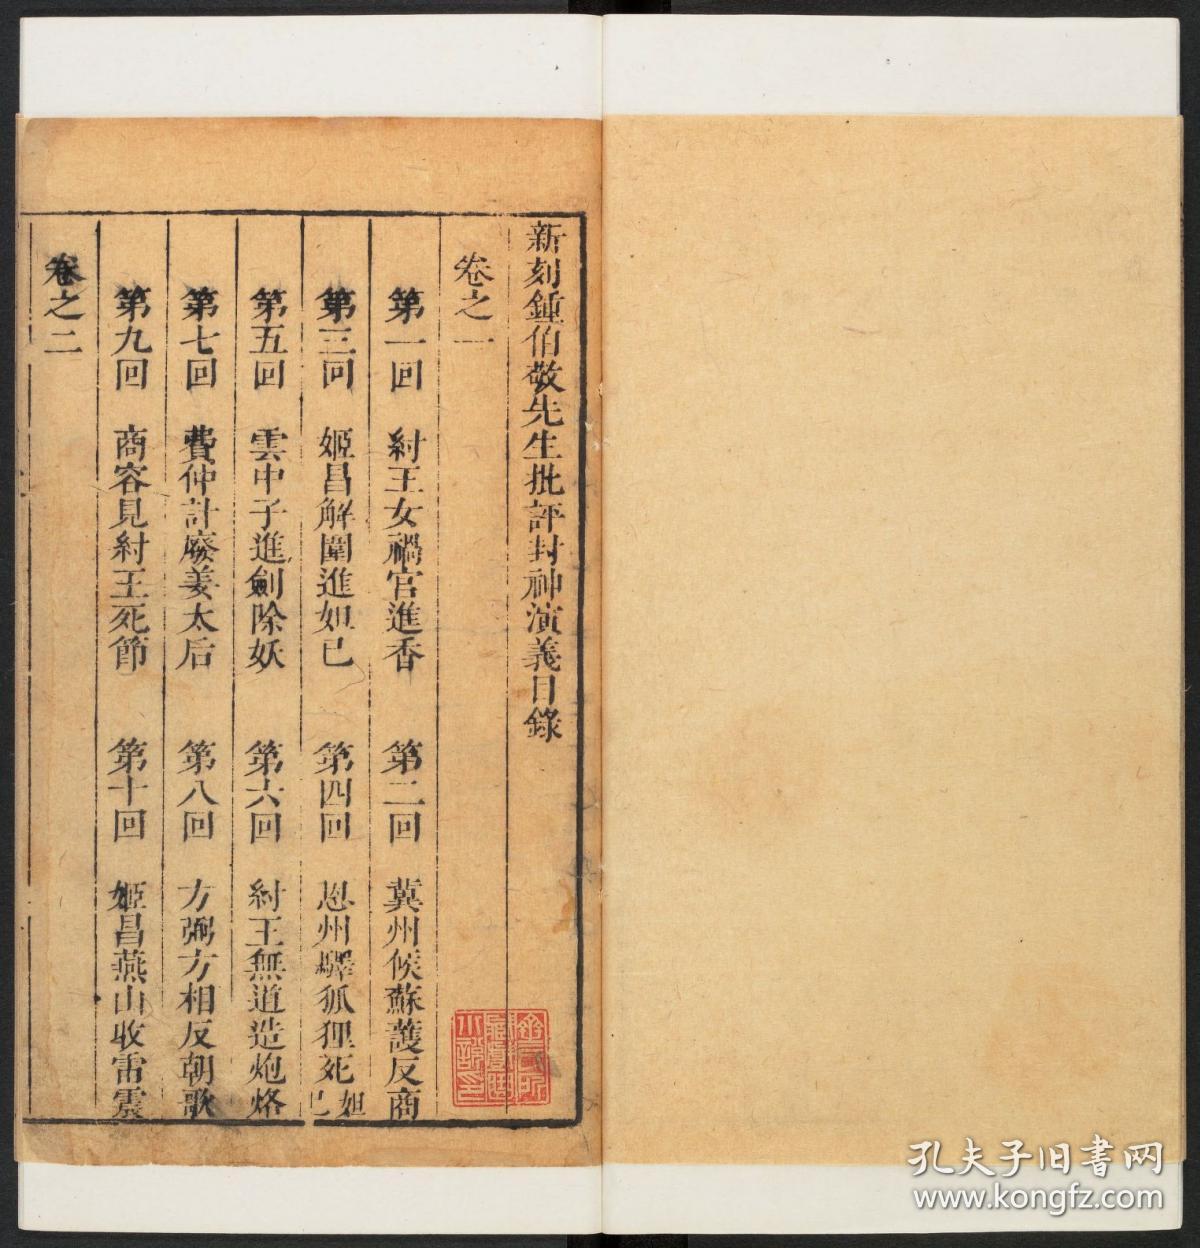 新刻鍾伯敬先生批評封神演義目錄
卷之一
第一回 紂王女禍宮進香 第二回 冀州候蘇護反商
第三回 姬昌解圍進妲已 第四回 恩州驛狐狸死妲已
第五回 雲中子進劍除妖 第六回 紂王無道造炮烙
第七回 費仲計廢姜太后 第八回 方弼方相反朝歌
第九回 商容見紂王死節 第十回 姬昌燕山收雷震
卷之二
孔夫子旧書网
www.kongfz.com